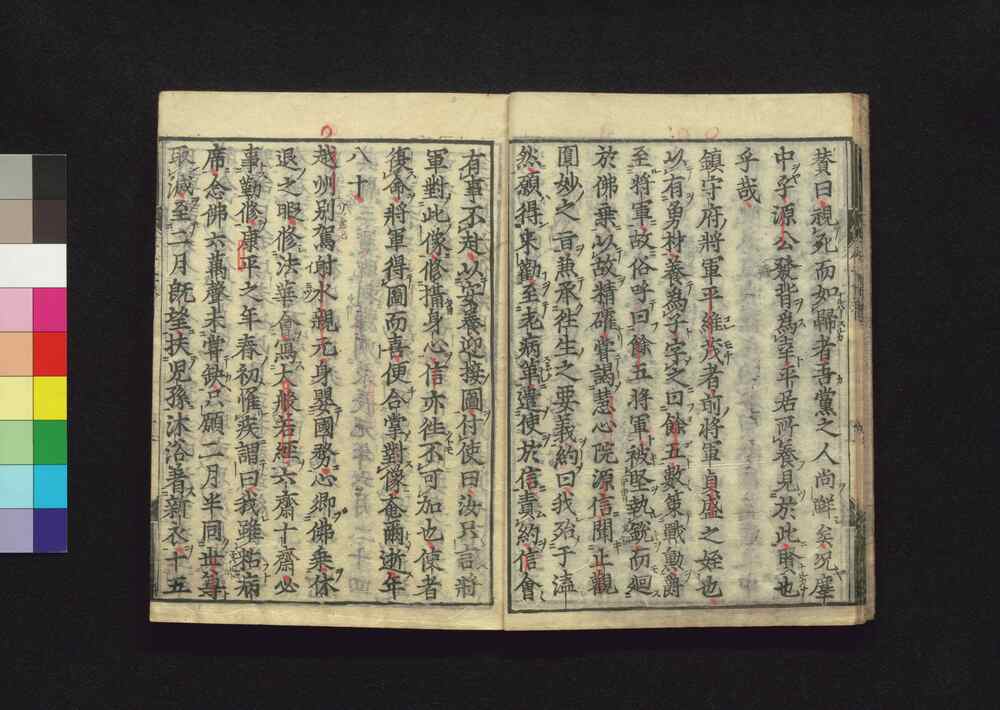 賛曰視死而如歸者吾黨之人尚鮮矣况塵
中乎源公發背爲幸平居所養見於此與也
乎哉
鎮守府將軍平維茂者前將軍貞盛之姪也
以有勇材養爲子字之曰餘五數策戰勳爵
至將軍故俗呼曰餘五將軍被堅執鋭而廻
於佛乗以故精確甞謁慧心院源信聞止觀
圓妙之旨兼承徃生之要義約曰我殆于溘
然願得来勸至老病革遣使於信責約信會
有事不赴以安養迎接圖付使曰汝只言將
軍對此像修攝身心信亦徃不可加也使者
復命將軍得圖而喜便合掌對像奄爾逝年
八十
越州別駕射水親元身嬰國務心郷佛乗休
退之暇修法華會寫大般若經六齋十齋必
事勤修康平之年春初惟疾謂曰我雖粘病
席念佛六萬聲未甞缺只願二月半同世尊
取滅至二月既望扶兒孫沐浴着新衣十五